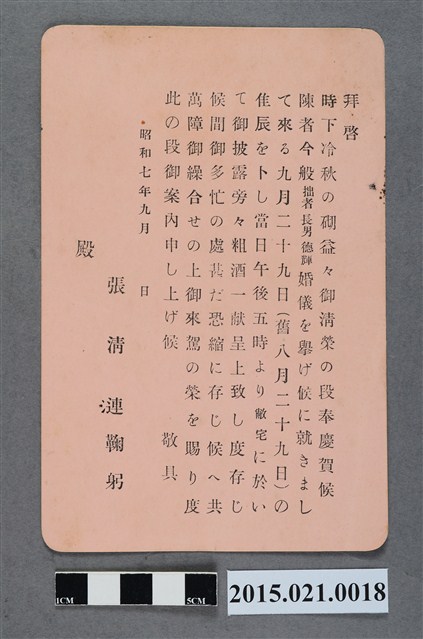 拜啓
時下冷秋の砌益々御淸榮の段奉慶賀候
陳者今般拙者長男德輝婚儀を擧げ候に就きまし
て來る九月二十九日(舊八月二十九日)の
佳辰を卜し當日午後五時より敝宅に於い
て御披露旁々粗酒一献呈上致し度存じ
候間御多忙の處甚だ恐縮に存じ候へ共
萬障御繰合せの上御來駕の榮を賜り度
此の段御案內申し上げ候 敬具
昭和七年九月 日
張淸連鞠躬
殿
1CM
5CM
2015.021.0018